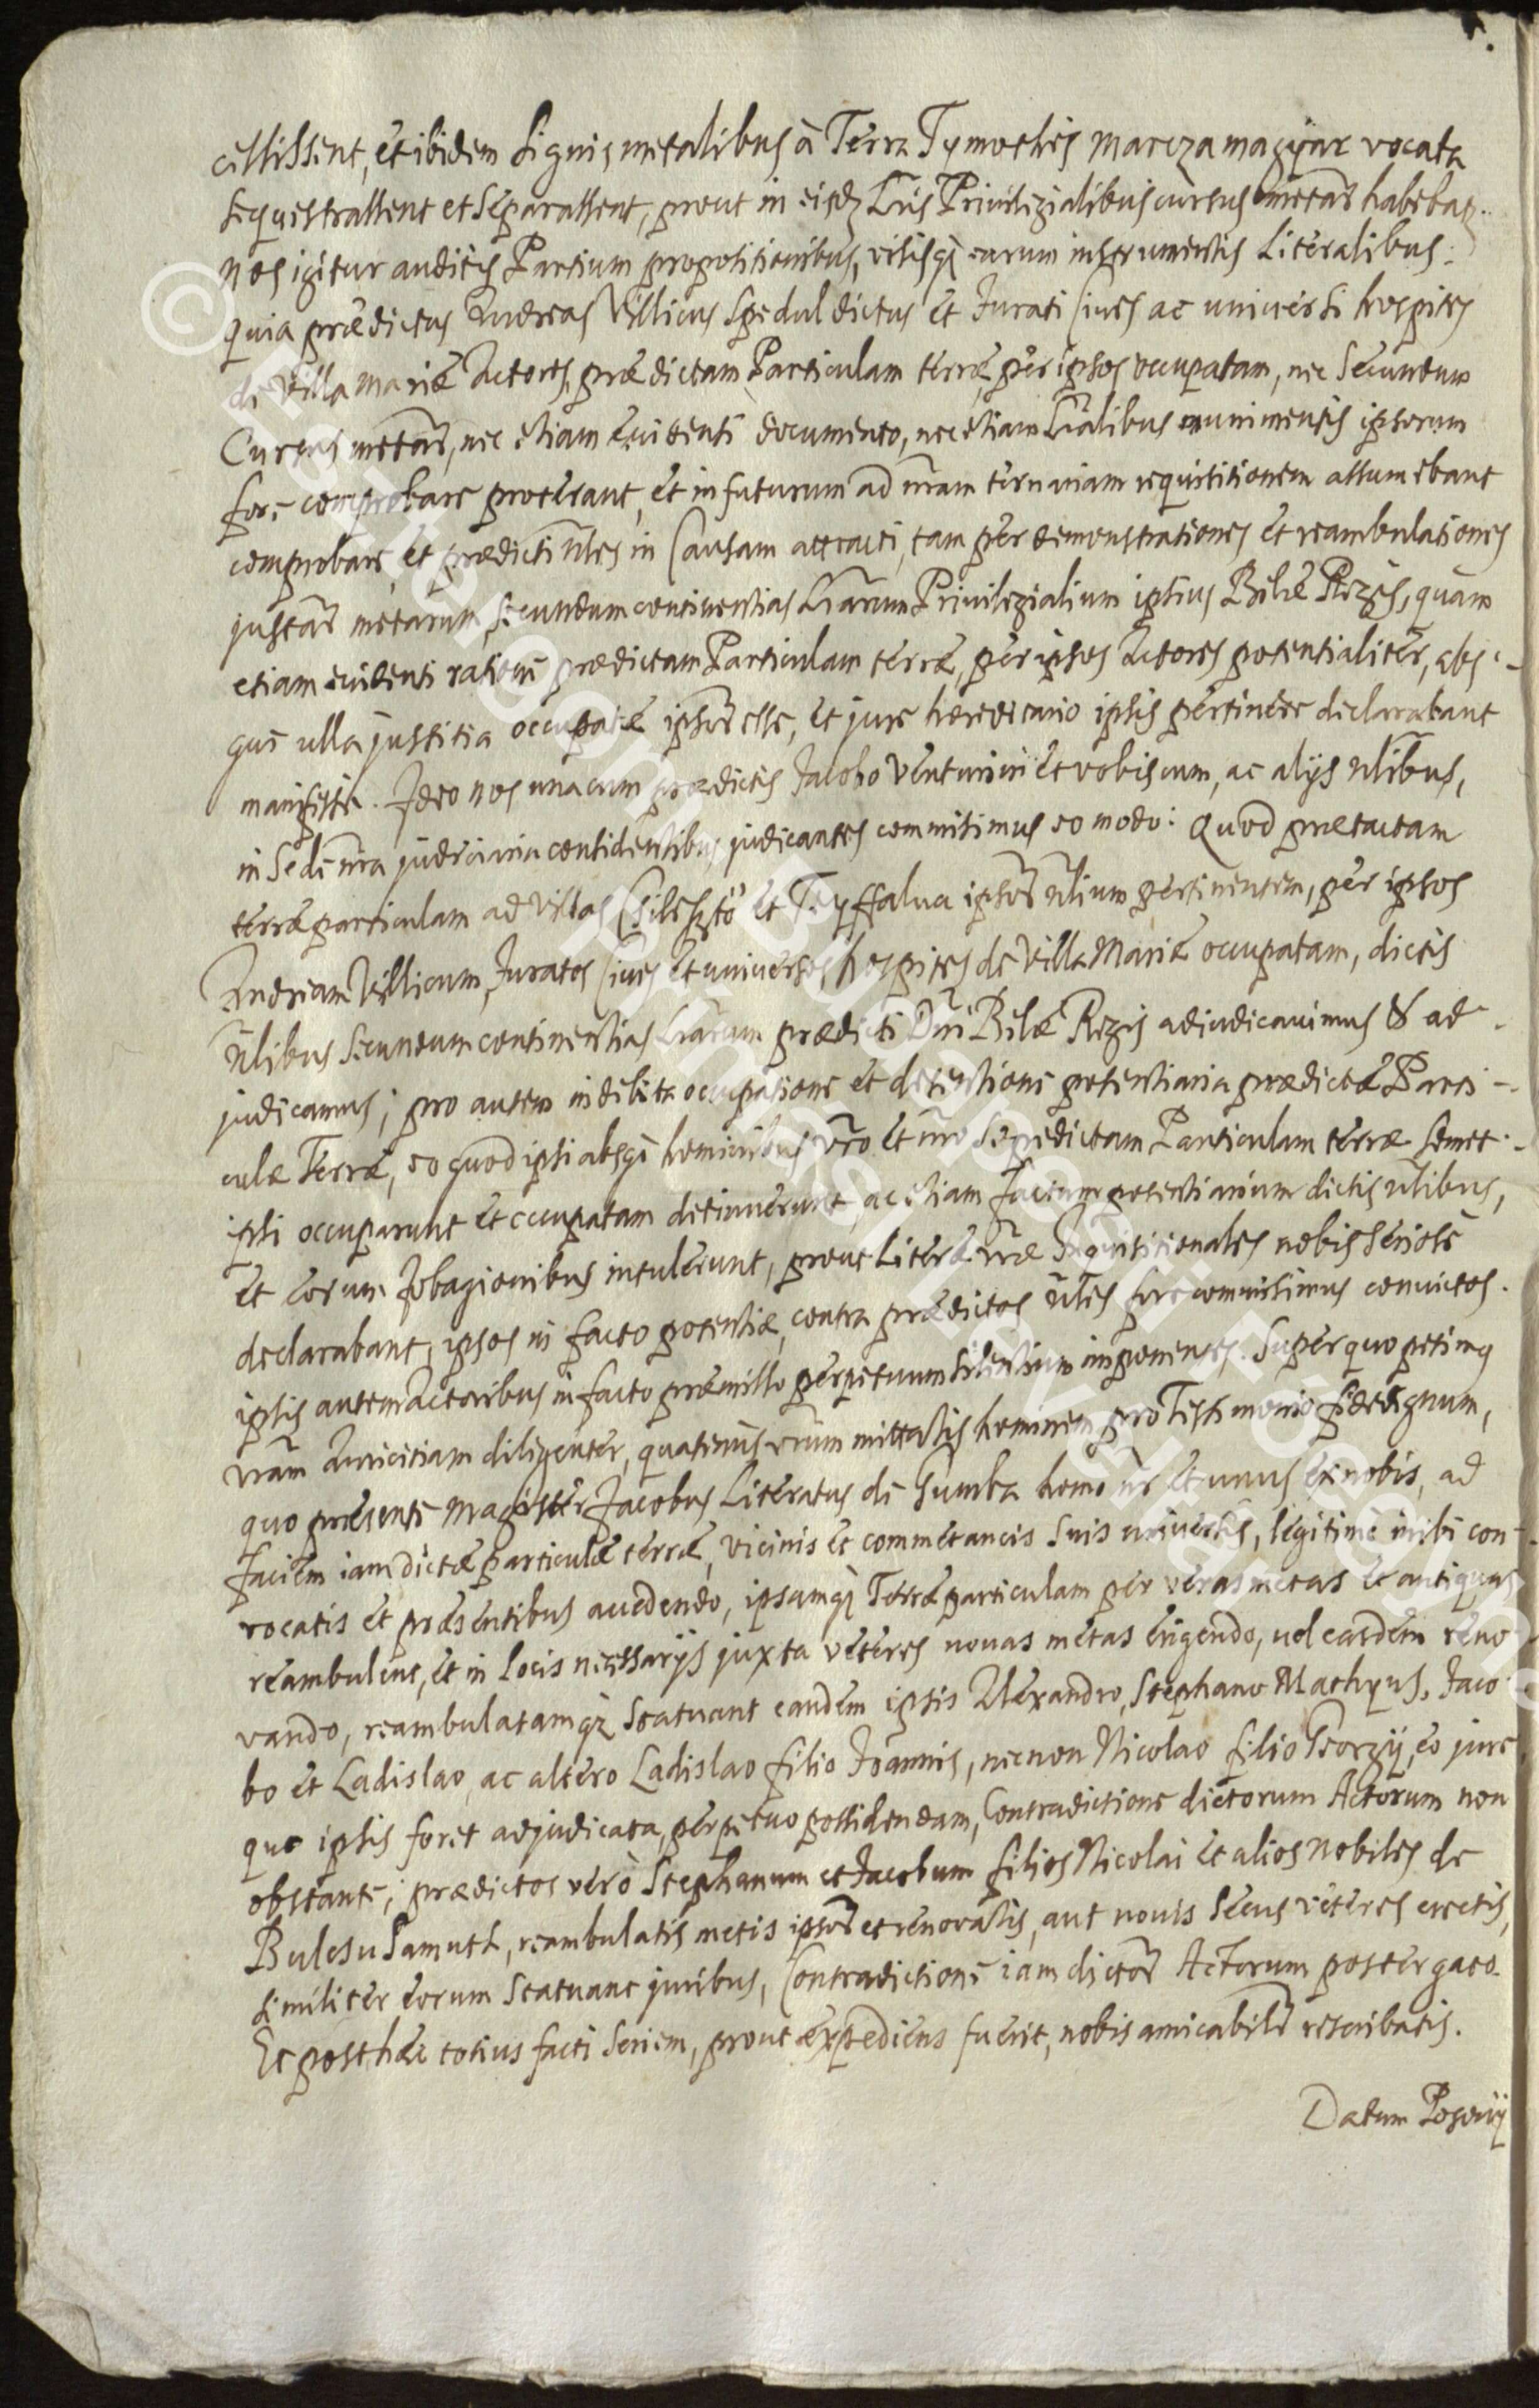 cessissent, et ibidem signis metalibus à Terra Tymothei Marczamagyar vocata
sequestrassent et separassent, prout in eisdẽ Lr̃is Privilegialibus cursus metar̃ habebaẗ.
Nos igitur auditis Partium propositionibus, visisq́ earum instrumentis Literalibus:
quia prædictus Andreas Villicus Spedul dictus et Jurati Cives ac universi hospites
de Villa Mariæ Actores, prædictam Particulam terræ, per ipsos occupatam, nec secundum
Cursus metar̃, nec etiam evidenti documento, nec etiam Lr̃alibus munimentis ipsorum
fore comprobare poterant, et in futurum ad nr̃am ternariam requisitionem assumebant
comprobare, et prædicti Nl̃es in Causam attracti, tam per demonstrationes et reambulationes
justar̃ metarum, secundum continentias Lr̃arum Privilegialium ipsius Belæ Regis, quam
etiam evidenti ratione prædictam Particulam terræ, per ipsos Actores potentialiter, abs-
que ulla justitia occupatæ ipsor̃ esse, et jure hæreditario ipsis pertinere declarabant
manifeste. Ideo nos unacum prædictis Jacobo Venturini et vobiscum, ac alijs Nl̃ibus,
in Sede nr̃a judiciaria considentibus, judicantes commisimus eo modo: Quod prætactam
terræ particulam ad Villas Csilesztö et Teyffalua ipsor̃ Nl̃ium pertinentem, per ipsos
Andream Villicum, Juratos Cives et universos hospites de Villa Mariæ occupatam, dictis
Nl̃ibus secundum continentias Lr̃arum prædicti Dñi Belæ Regis adjudicavimus & ad-
judicamus; pro autem indebita occupatione et detentione potentiaria prædictæ Parti-
culæ Terræ, eo quod ipsi absq́ hominibus vr̃o et nr̃o sæpedictam Particulam terræ semet-
ipsi occuparunt et occupatam detinuerunt, ac etiam factum potentiarium dictis Nl̃ibus,
et eorum Jobagionibus intulerunt, prout Literæ vr̃æ Inquisitionales nobis seriose
declarabant, ipsos in facto potentiæ, contra prædictos Nl̃es fore commisimus convictos.
ipsis autem Actoribus in facto præmisso perpetuum silentium imponentes. Super quo petimꝰ
vr̃am Amicitiam diligenter, quatenus vr̃um mittatis hominem pro Testimonio fidedignum,
quo præsente Magister Jacobus Literatus de Gumba homo nr̃ et unus ex nobis, ad
faciem iamdictæ particulæ terræ, vicinis et commetaneis suis universis, legitime inibi con-
vocatis et præsentibus accedendo, ipsamq́ Terræ particulam per veras metas et antiquas
reambulent, et in locis necessarijs juxta veteres novas metas erigendo, vel easdem reno-
vando, reambulatamq́ statuant eandem ipsis Alexandro, Stephano Mathyus, Jaco-
bo et Ladislao, ac altero Ladislao filio Joannis, necnon Nicolao filio Georgij, eo jure
quo ipsis foret adjudicata, perpetuo possidendam, Contradictione dictorum Actorum non
obstante; prædictos verò Stephanum et Jacobum filios Nicolai et alios Nobiles de
Bulcsu Samuth, reambulatis metis ipsor̃ et renovatis, aut novis secus veteres erectis,
similiter eorum statuant juribus, Contradictione iam dictor̃ Actorum postergato.
Et posthæc totius facti seriem, prout expediens fuerit, nobis amicabilr̃ rescribatis.
Datum Posonij